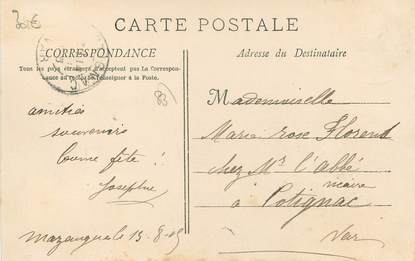 CARTE POSTALE
CORRESPONDANCE
Tous les pays étrangers n'acceptent pas La Correspon-
dance au recto. Se renseigner à la Poste.
amitiés
souvenirs
bonne fête !
Josephine
Mazaugues le 15-8-05
Adresse du Destinataire
83
Mademoiselle
Marie rose Florend
chez Mr l'abbé
vicaire
à Cotignac
Var